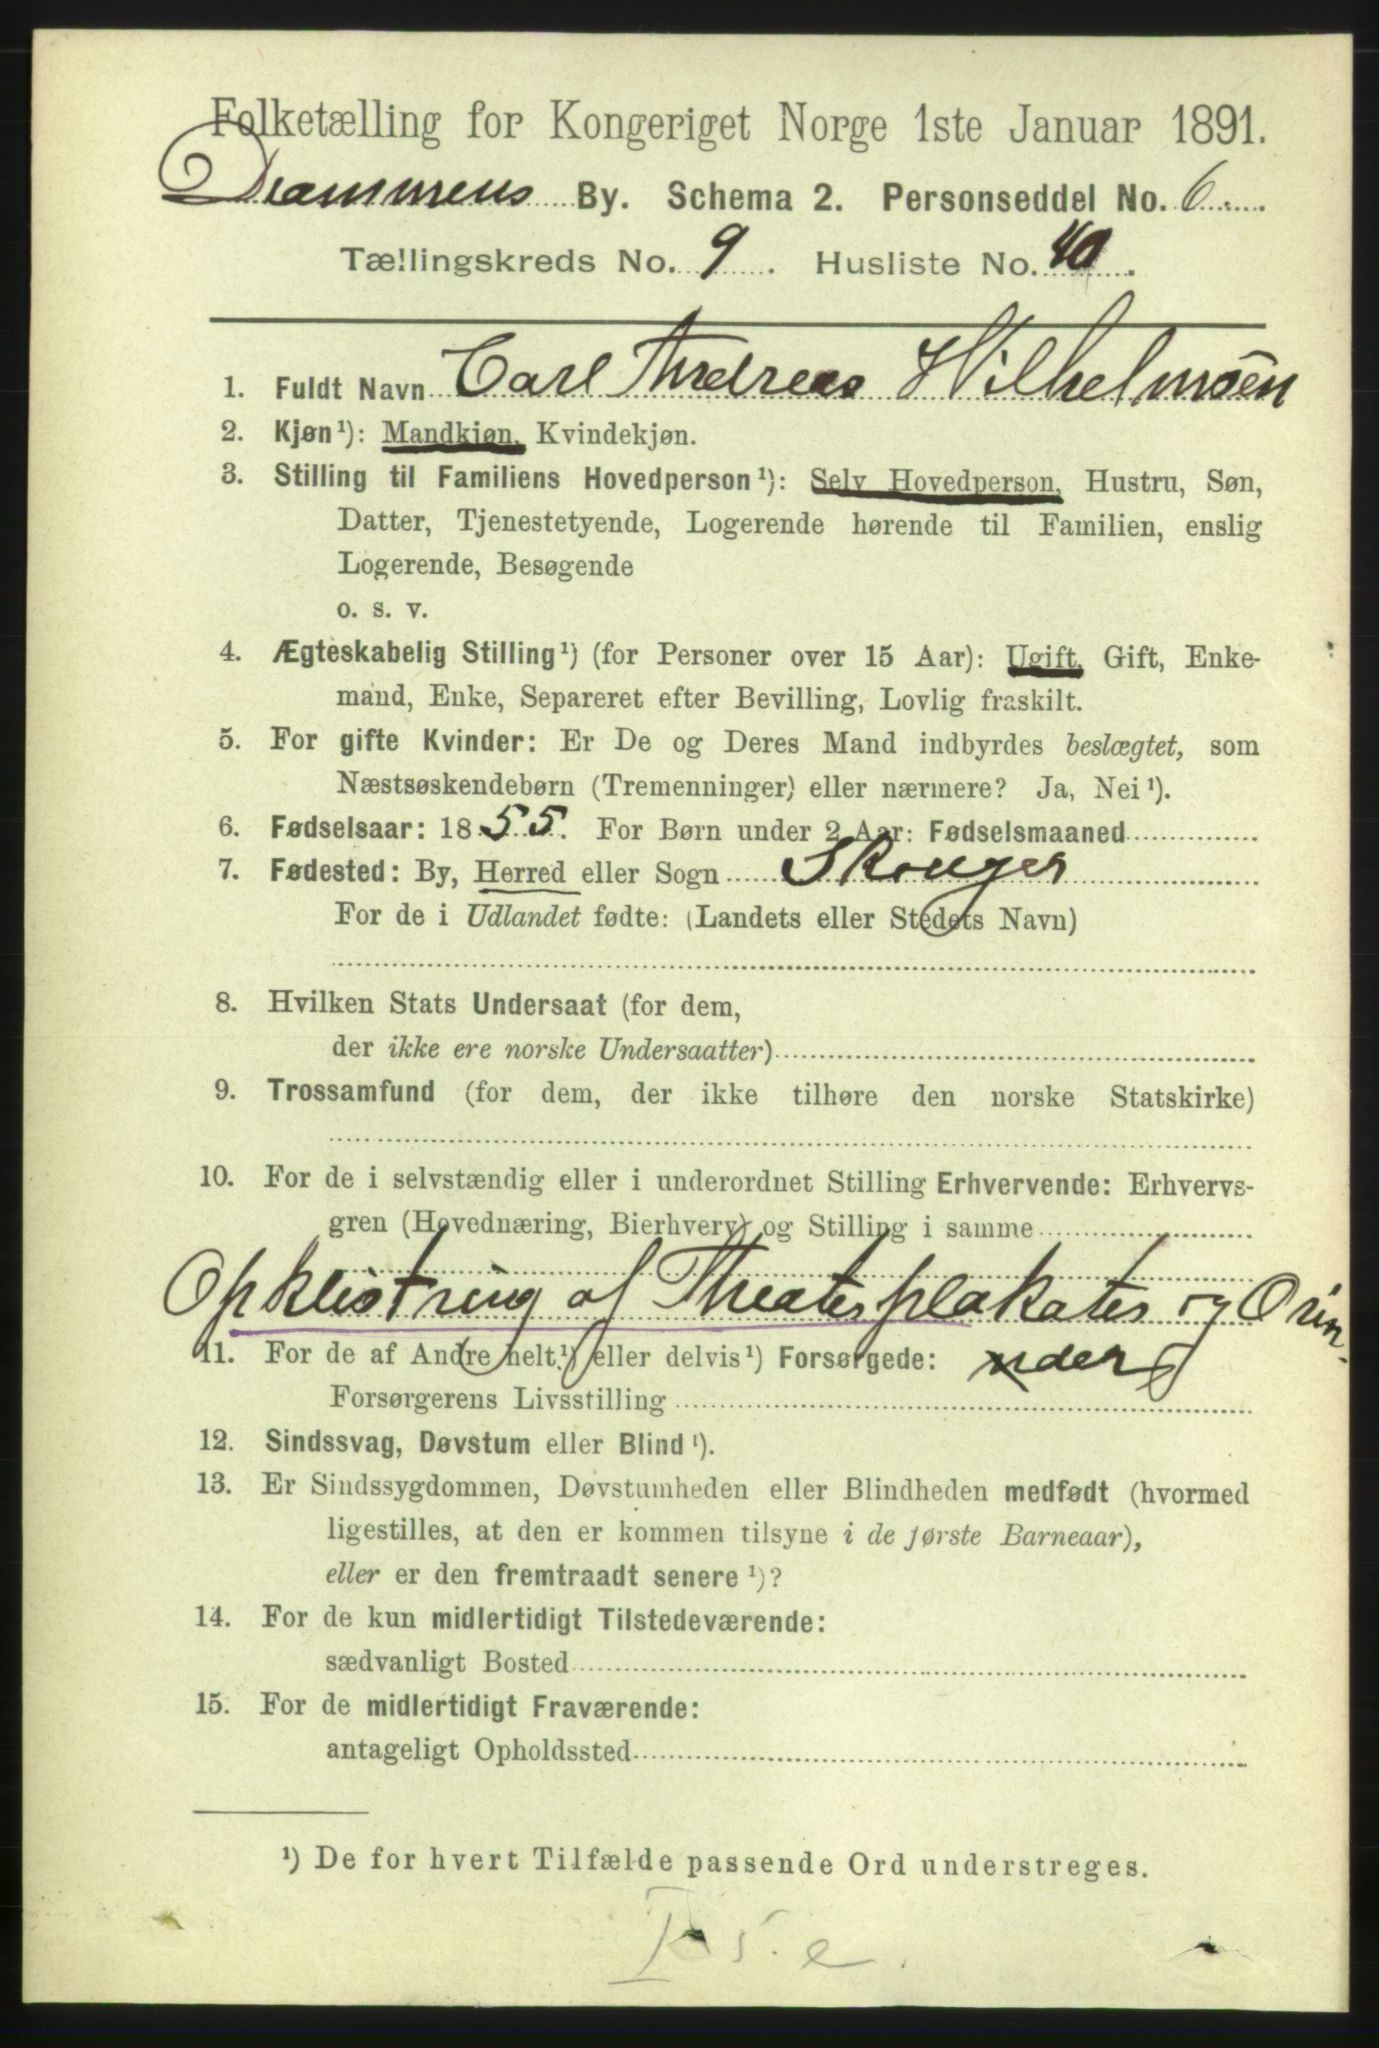 Folketælling for Kongeriget Norge 1ste Januar 1891.
Drammens By. Schema 2. Personseddel No. 6.
Tællingskreds No. 9. Husliste No. 40.
1. Fuldt Navn Carl Andreas Wilhelmsen
2. Kjøn¹): Mandkjøn, Kvindekjøn.
3. Stilling til Familiens Hovedperson¹): Selv Hovedperson, Hustru, Søn,
Datter, Tjenestetyende, Logerende hørende til Familien, enslig
Logerende, Besøgende
o. s. v.
4. Ægteskabelig Stilling¹) (for Personer over 15 Aar): Ugift, Gift, Enke-
mand, Enke, Separeret efter Bevilling, Lovlig fraskilt.
5. For gifte Kvinder: Er De og Deres Mand indbyrdes beslægtet, som
Næstsøskendebørn (Tremenninger) eller nærmere? Ja, Nei¹).
6. Fødselsaar: 1855. For Børn under 2 Aar: Fødselsmaaned
7. Fødested: By, Herred eller Sogn Skouger
For de i Udlandet fødte: (Landets eller Stedets Navn)
8. Hvilken Stats Undersaat (for dem,
der ikke ere norske Undersaatter)
9. Trossamfund (for dem, der ikke tilhøre den norske Statskirke)
10. For de i selvstændig eller i underordnet Stilling Erhvervende: Erhvervs-
gren (Hovednæring, Bierhverv) og Stilling i samme
Opklistring af Theaterplakater og
11. For de af Andre helt¹) eller delvis¹) Forsørgede:
Forsørgerens Livsstilling
12. Sindssvag, Døvstum eller Blind¹).
13. Er Sindssygdommen, Døvstumheden eller Blindheden medfødt (hvormed
ligestilles, at den er kommen tilsyne i de første Barneaar),
eller er den fremtraadt senere¹)?
14. For de kun midlertidigt Tilstedeværende:
sædvanligt Bosted
15. For de midlertidigt Fraværende:
antageligt Opholdssted
¹) De for hvert Tilfælde passende Ord understreges.